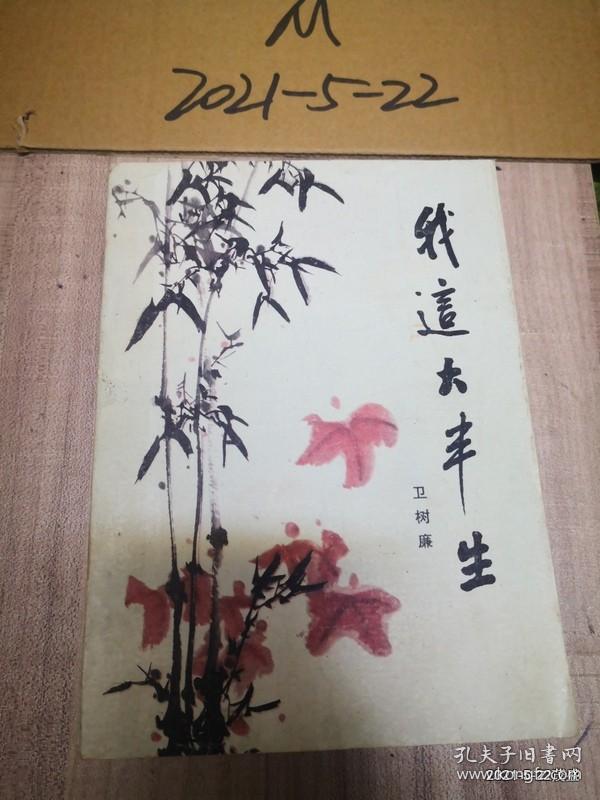 M
2021-5-22
我這大半生
卫树廉
孔夫子旧书网